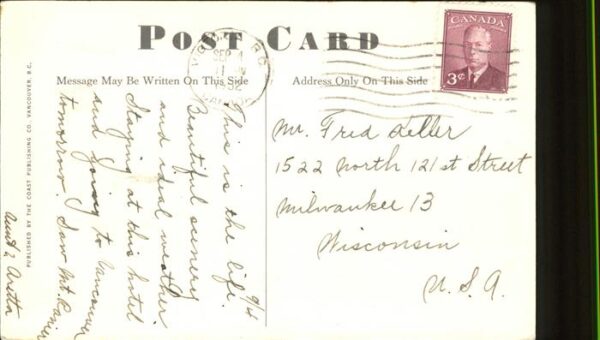 POST CARD
Message May Be Written On This Side
Address Only On This Side
CANADA
3¢
SEP 4
PUBLISHED BY THE COAST PUBLISHING CO. VANCOUVER, B.C.
9/4
This is the life.
Beautiful scenery
and ideal weather
Staying at this hotel
and going to Vancouver
tomorrow. Saw Mt. Ranier
Aunt Aretta
Mr. Fred Keller
1522 North 121st Street
Milwaukee 13
Wisconsin
U.S.A.